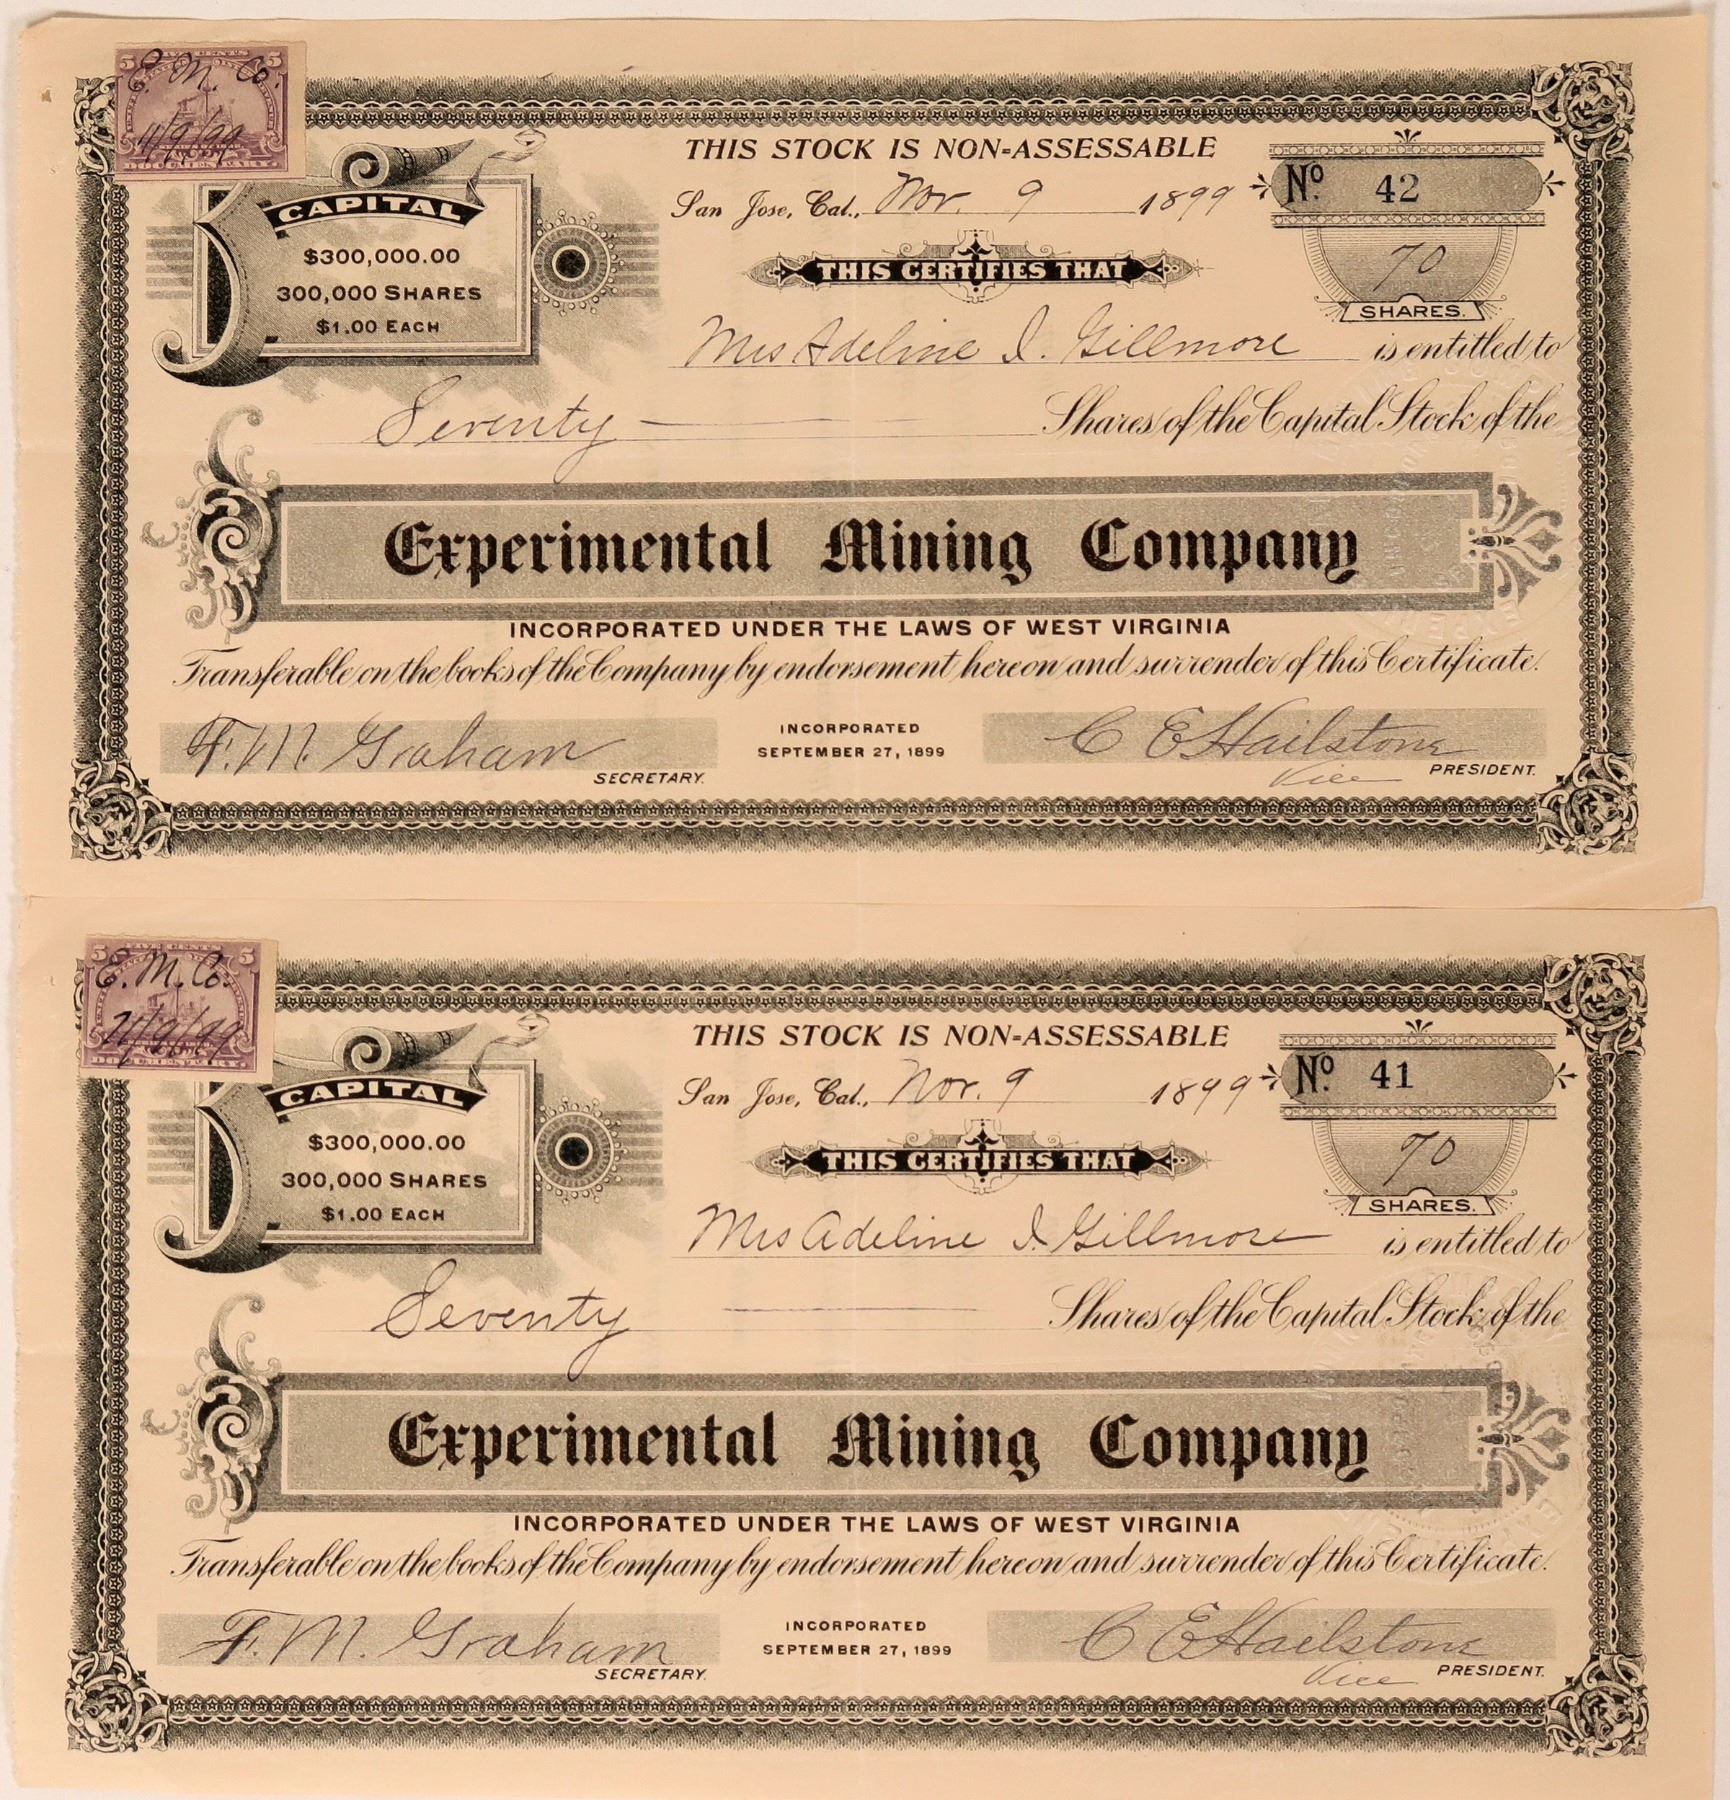 5 FIVE CENTS 5
E. M. Co.
11/9/99
DOCUMENTARY.
THIS STOCK IS NON-ASSESSABLE
San Jose, Cal., Nov. 9 1899
No 42
CAPITAL
$300,000.00
300,000 SHARES
$1.00 EACH
THIS CERTIFIES THAT
70
SHARES.
Mrs Adeline I. Gillmore is entitled to
Seventy Shares of the Capital Stock of the
Experimental Mining Company
INCORPORATED UNDER THE LAWS OF WEST VIRGINIA
Transferable on the books of the Company by endorsement hereon and surrender of this Certificate.
F. M. Graham
SECRETARY.
INCORPORATED
SEPTEMBER 27, 1899
C E Hailstone
Vice PRESIDENT.
5 FIVE CENTS 5
E. M. Co.
11/9/99
DOCUMENTARY.
THIS STOCK IS NON-ASSESSABLE
San Jose, Cal., Nov. 9 1899
No. 41
CAPITAL
$300,000.00
300,000 SHARES
$1.00 EACH
THIS CERTIFIES THAT
70
SHARES.
Mrs Adeline I. Gillmore is entitled to
Seventy Shares of the Capital Stock of the
Experimental Mining Company
INCORPORATED UNDER THE LAWS OF WEST VIRGINIA
Transferable on the books of the Company by endorsement hereon and surrender of this Certificate.
F. M. Graham
SECRETARY.
INCORPORATED
SEPTEMBER 27, 1899
C E Hailstone
Vice PRESIDENT.